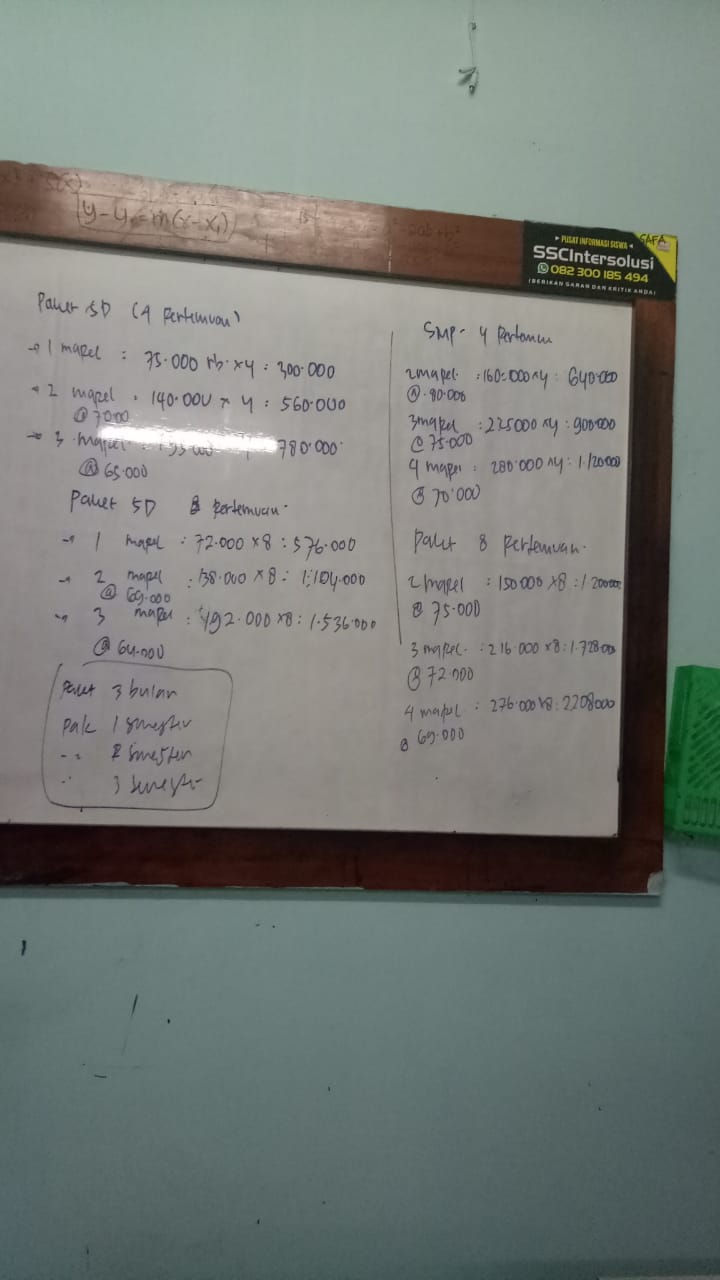 y-y₁=m(x-x₁)
GAFA
PUSAT INFORMASI SISWA
SSCIntersolusi
082 300 185 494
(BERIKAN SARAN DAN KRITIK ANDA)
Paket SD (4 Pertemuan)
→ 1 mapel : 75.000 rb x 4 : 300.000
2 mapel : 140.000 x 4 : 560.000
@ 7000
→ 3 mapel : 195.000 780.000
@ 65.000
Paket SD 8 Pertemuan
→ 1 mapel : 72.000 x 8 : 576.000
→ 2 mapel : 138.000 x 8 : 1.104.000
@ 69.000
→ 3 mapel : 192.000 x 8 : 1.536.000
@ 64.000
Paket 3 bulan
Pak 1 smester
2 smester
3 smester
SMP - 4 Pertemuan
2 mapel : 160.000 x 4 : 640.000
@ 80.000
3 mapel : 225000 x 4 : 900000
@ 75.000
4 mapel : 280.000 x 4 : 1.120000
@ 70.000
Paket 8 Pertemuan
2 mapel : 150000 x 8 : 1.200000
@ 75.000
3 mapel : 216.000 x 8 : 1.728.000
@ 72.000
4 mapel : 276.000 x 8 : 2208000
@ 69.000